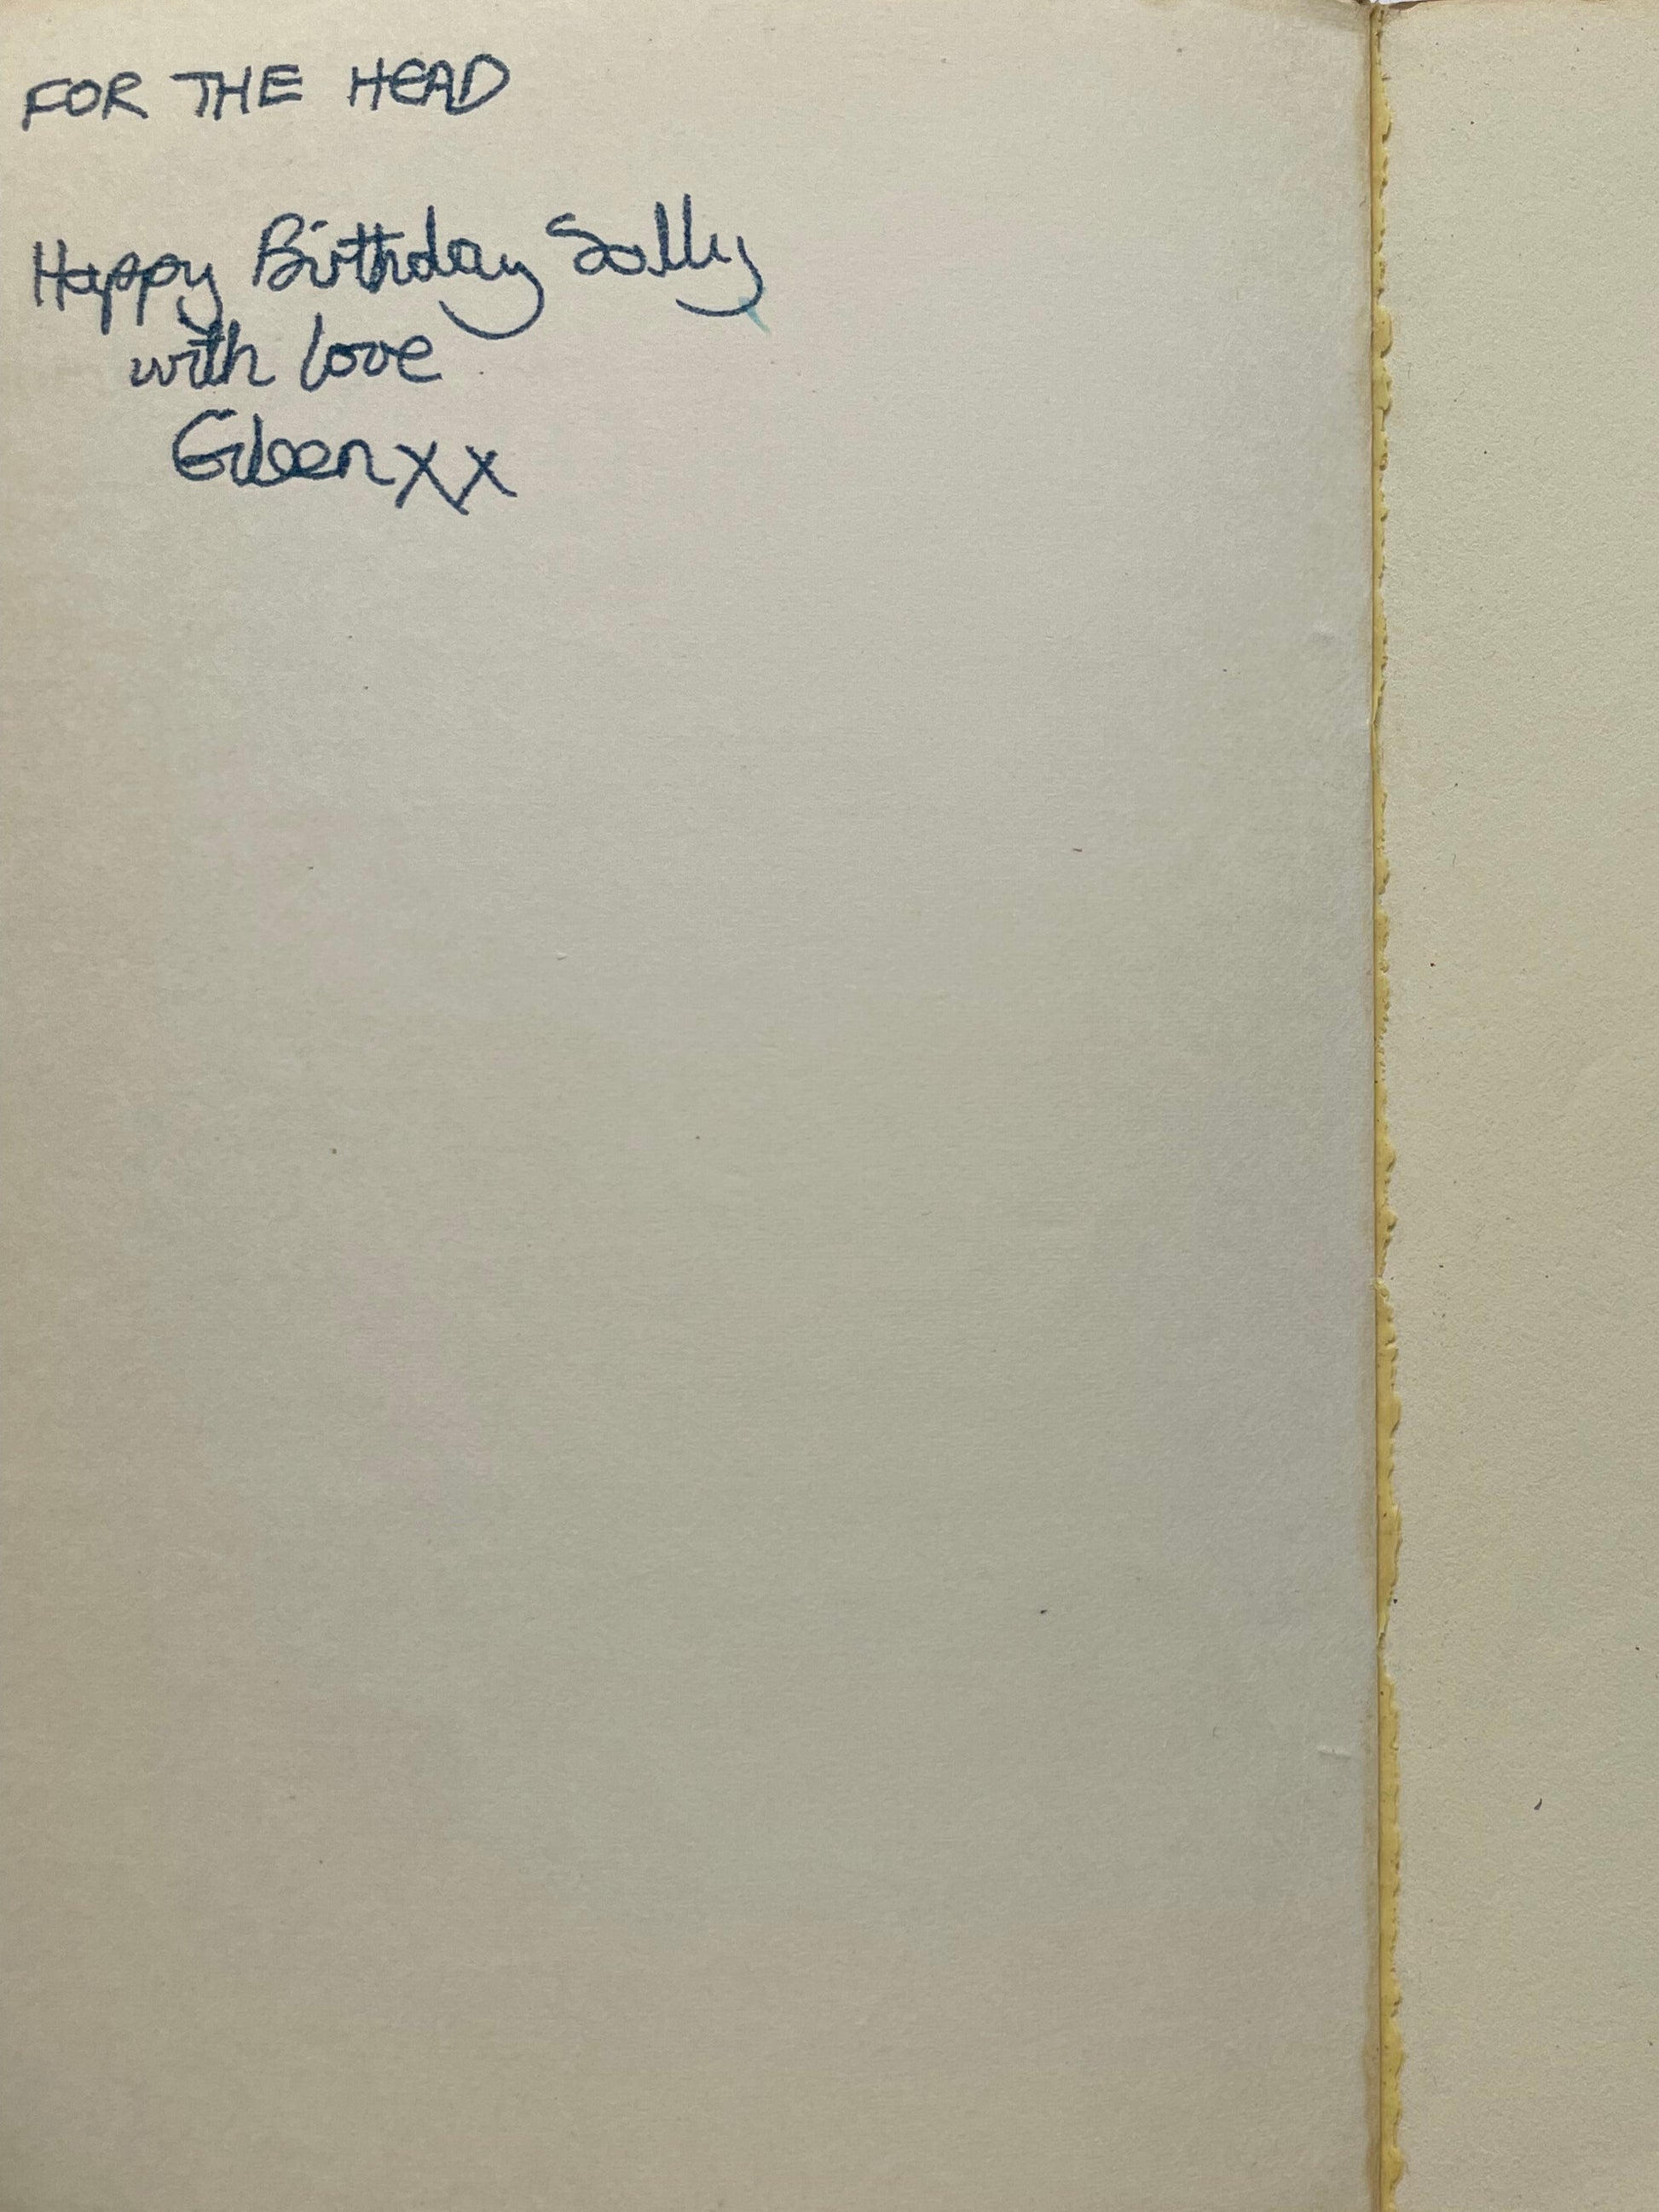 FOR THE HEAD
Happy Birthday Sally
with love
Eileen xx